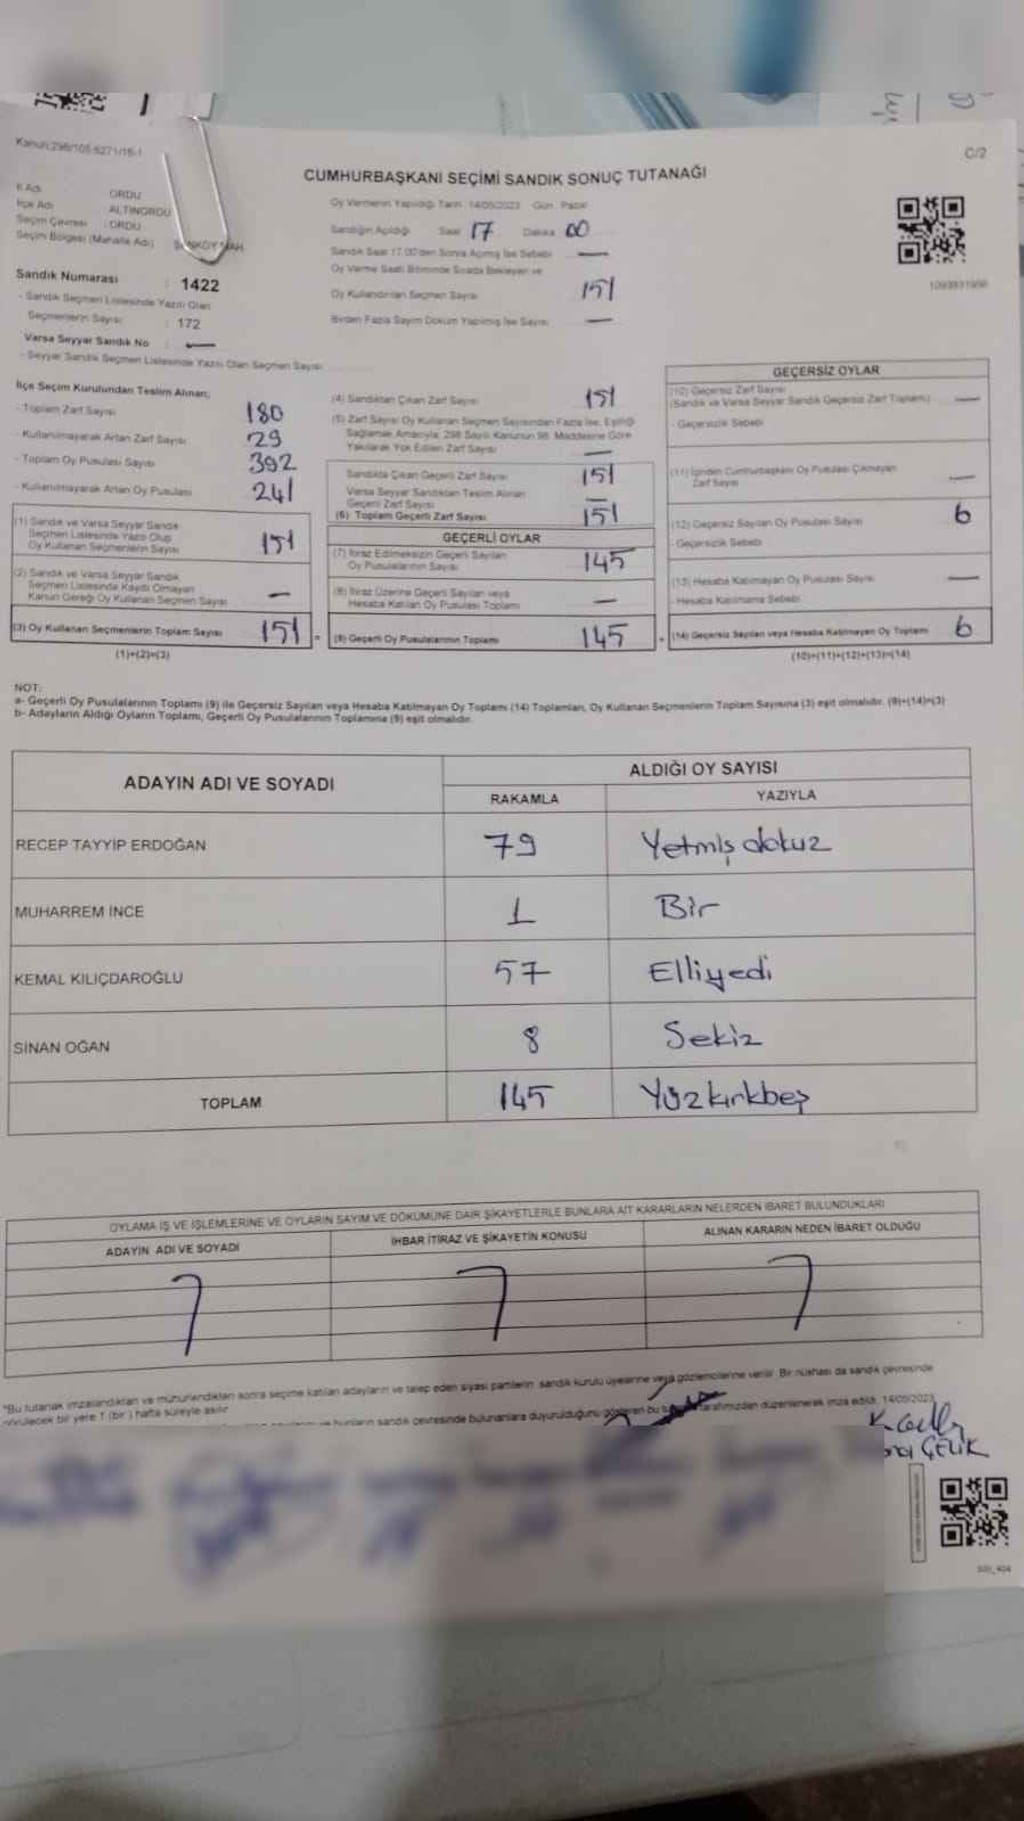 Kanun:298/105-6271/16-1
C/2
CUMHURBAŞKANI SEÇİMİ SANDIK SONUÇ TUTANAĞI
İl Adı : ORDU
İlçe Adı : ALTINORDU
Seçim Çevresi : ORDU
Seçim Bölgesi (Mahalle Adı)
Sandık Numarası : 1422
- Sandık Seçmen Listesinde Yazılı Olan
Seçmenlerin Sayısı : 172
Varsa Seyyar Sandık No : —
- Seyyar Sandık Seçmen Listesinde Yazılı Olan Seçmen Sayısı
Oy Vermenin Yapıldığı Tarih :14/05/2023 Gün : Pazar
Sandığın Açıldığı Saat 17 Dakika 00
Sandık Saat 17.00'den Sonra Açılmış İse Sebebi —
Oy Verme Saati Bitiminde Sırada Bekleyen ve
Oy Kullandırılan Seçmen Sayısı 151
Birden Fazla Sayım Döküm Yapılmış İse Sayısı —
İlçe Seçim Kurulundan Teslim Alınan;
- Toplam Zarf Sayısı 180
- Kullanılmayarak Artan Zarf Sayısı 29
- Toplam Oy Pusulası Sayısı 392
- Kullanılmayarak Artan Oy Pusulası 241
(1) Sandık ve Varsa Seyyar Sandık
Seçmen Listesinde Yazılı Olup
Oy Kullanan Seçmenlerin Sayısı 151
(2) Sandık ve Varsa Seyyar Sandık
Seçmen Listesinde Kaydı Olmayan
Kanun Gereği Oy Kullanan Seçmen Sayısı —
(3) Oy Kullanan Seçmenlerin Toplam Sayısı 151
(1)+(2)=(3)
(4) Sandıktan Çıkan Zarf Sayısı 151
(5) Zarf Sayısı Oy Kullanan Seçmen Sayısından Fazla İse, Eşitliği
Sağlamak Amacıyla, 298 Sayılı Kanunun 98. Maddesine Göre
Yakılarak Yok Edilen Zarf Sayısı —
Sandıkta Çıkan Geçerli Zarf Sayısı 151
Varsa Seyyar Sandıktan Teslim Alınan
Geçerli Zarf Sayısı —
(6) Toplam Geçerli Zarf Sayısı 151
GEÇERLİ OYLAR
(7) İtiraz Edilmeksizin Geçerli Sayılan
Oy Pusulalarının Sayısı 145
(8) İtiraz Üzerine Geçerli Sayılan veya
Hesaba Katılan Oy Pusulası Toplamı —
(9) Geçerli Oy Pusulalarının Toplamı 145
GEÇERSİZ OYLAR
(10) Geçersiz Zarf Sayısı
(Sandık ve Varsa Seyyar Sandık Geçersiz Zarf Toplamı) —
- Geçersizlik Sebebi
(11) İçinden Cumhurbaşkanı Oy Pusulası Çıkmayan
Zarf Sayısı —
(12) Geçersiz Sayılan Oy Pusulası Sayısı 6
- Geçersizlik Sebebi
(13) Hesaba Katılmayan Oy Pusulası Sayısı —
- Hesaba Katılmama Sebebi
(14) Geçersiz Sayılan veya Hesaba Katılmayan Oy Toplamı 6
(10)+(11)+(12)+(13)=(14)
NOT:
a- Geçerli Oy Pusulalarının Toplamı (9) ile Geçersiz Sayılan veya Hesaba Katılmayan Oy Toplamı (14) Toplamları, Oy Kullanan Seçmenlerin Toplam Sayısına (3) eşit olmalıdır. (9)+(14)=(3)
b- Adayların Aldığı Oyların Toplamı, Geçerli Oy Pusulalarının Toplamına (9) eşit olmalıdır.
ADAYIN ADI VE SOYADI
ALDIĞI OY SAYISI
RAKAMLA YAZIYLA
RECEP TAYYİP ERDOĞAN 79 Yetmiş dokuz
MUHARREM İNCE 1 Bir
KEMAL KILIÇDAROĞLU 57 Elliyedi
SİNAN OĞAN 8 Sekiz
TOPLAM 145 Yüzkırkbeş
OYLAMA İŞ VE İŞLEMLERİNE VE OYLARIN SAYIM VE DÖKÜMÜNE DAİR ŞİKAYETLERLE BUNLARA AİT KARARLARIN NELERDEN İBARET BULUNDUKLARI
ADAYIN ADI VE SOYADI İHBAR İTİRAZ VE ŞİKAYETİN KONUSU ALINAN KARARIN NEDEN İBARET OLDUĞU
*Bu tutanak imzalandıktan ve mühürlendikten sonra seçime katılan adayların ve talep eden siyasi partilerin sandık kurulu üyelerine veya gözlemcilerine verilir. Bir nüshası da sandık çevresinde
görülecek bir yere 1 (bir) hafta süreyle asılır.
bunların sandık çevresinde bulunanlara duyurulduğunu gösteren bu tarafımızdan düzenlenerek imza edildi. 14/05/2023
ÇELİK